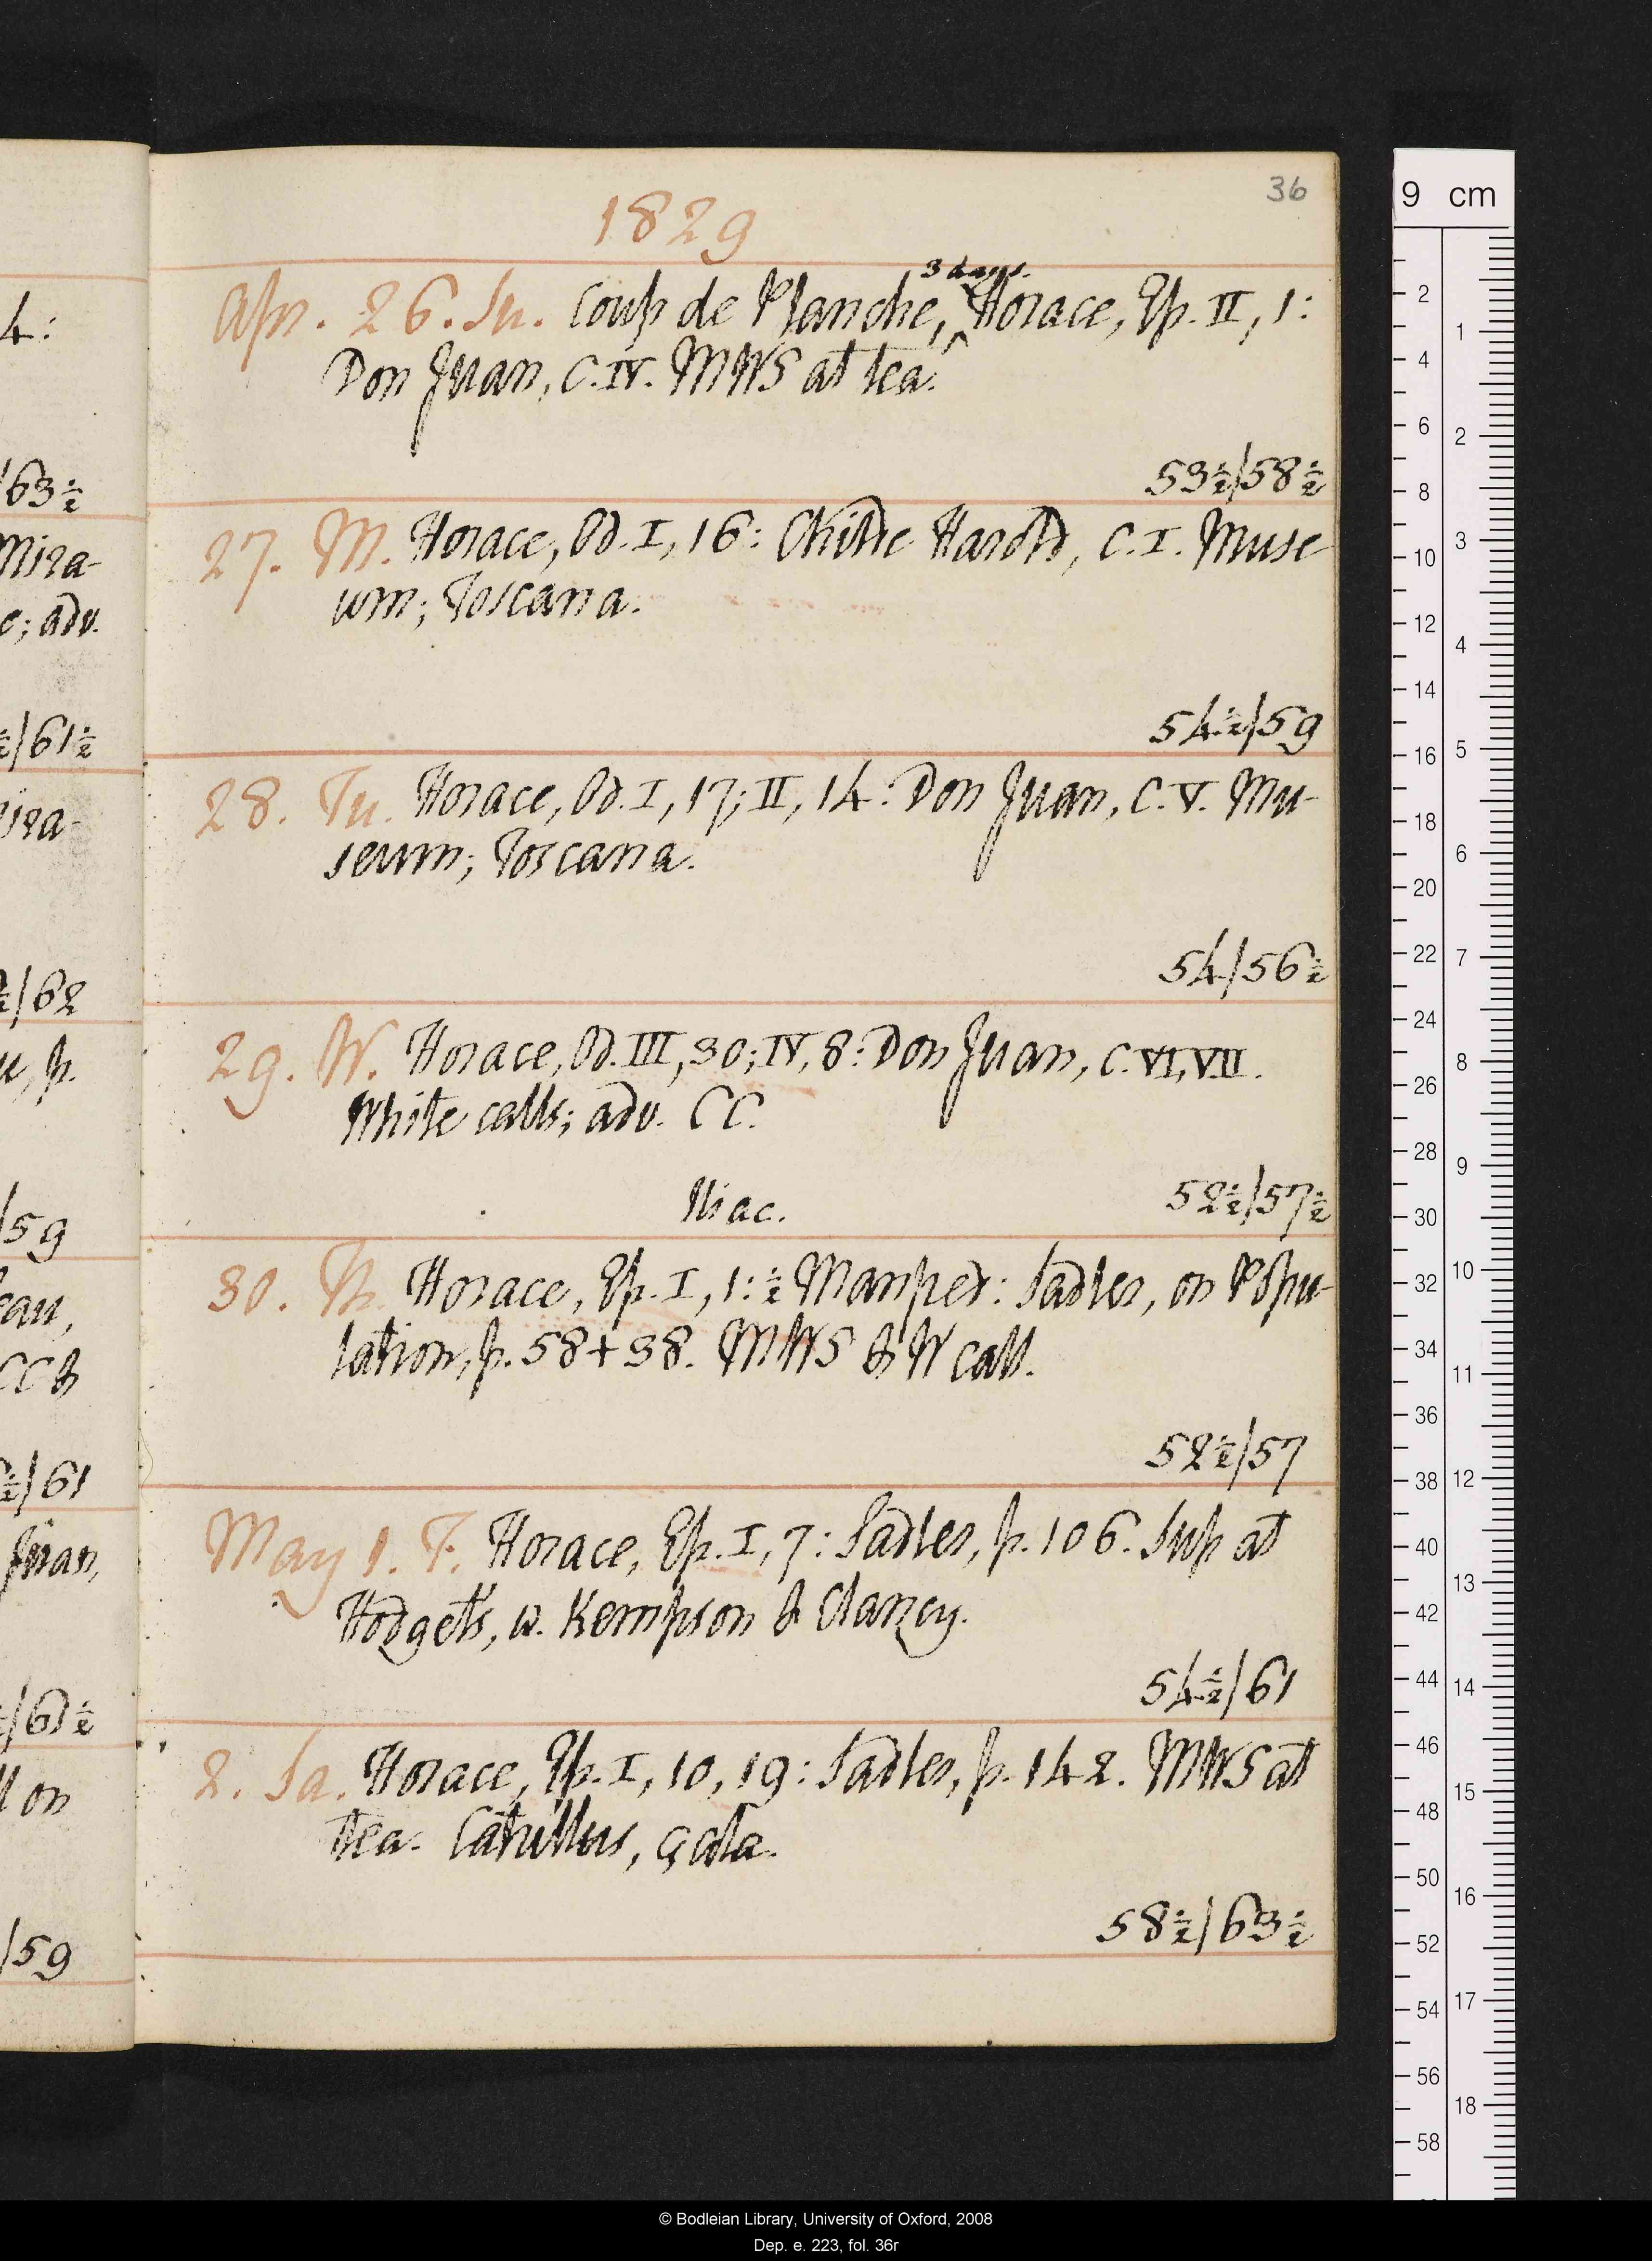 36
1829
Apr. 26. Su. Coup de Planche, ^3 days. Horace, Ep. II, 1:
Don Juan, C. IV. MWS at tea.
53½/58½
27. M. Horace, Od. I, 16: Childe Harold, C. I. Muse-
um; Toscana.
54½/59
28. Tu. Horace, Od. I, 17; II, 14: Don Juan, C. V. Mu-
seum; Toscana.
54/56½
29. W. Horace, Od. III, 30; IV, 8: Don Juan, C. VI, VII.
White calls; adv. CC.
Iliac.
52½/57½
30. Th. Horace, Ep. I, 1: ½ Manfred: Sadler, on Popu-
lation, p. 58+38. MWS & W call.
52½/57
May 1. F. Horace, Ep. I, 7: Sadler, p. 106. Sup at
Hodgets, w. Kempson & Clancy.
54½/61
2. Sa. Horace, Ep. I, 10, 19: Sadler, p. 142. MWS at
tea. Catullus, çala.
58½/63½
4:
/63½
Mira-
c; adv.
½/61½
ira-
½/62
u, p.
/59
eau,
CC &
½/61
Juan,
/61½
ll on
/59
9 cm
2
4
6
8
10
12
14
16
18
20
22
24
26
28
30
32
34
36
38
40
42
44
46
48
50
52
54
56
58
1
2
3
4
5
6
7
8
9
10
11
12
13
14
15
16
17
18
© Bodleian Library, University of Oxford, 2008
Dep. e. 223, fol. 36r